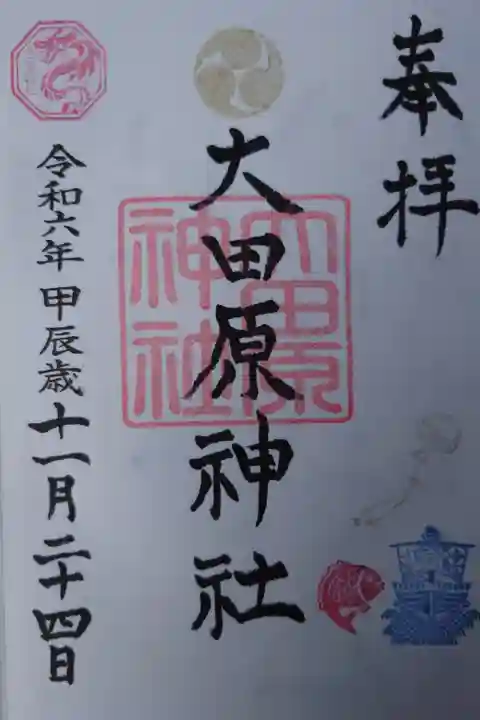 奉拝
大田原神社
大田原
神社
令和六年 甲辰歳 十一月二十四日